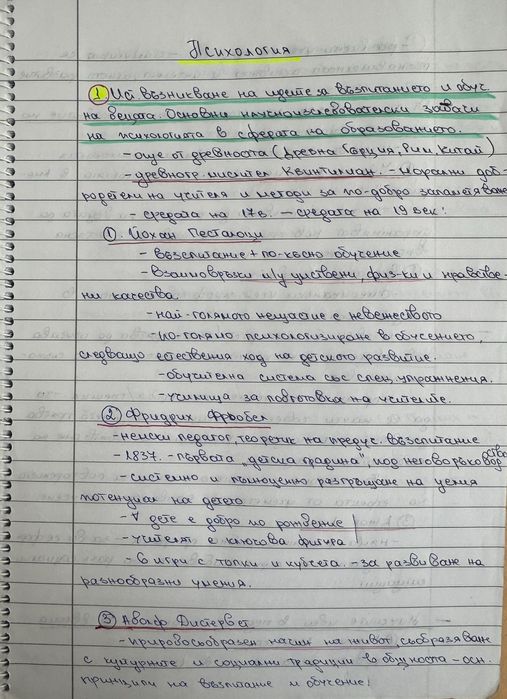 Психология
1 Ист възникване на идеите за възпитанието и обуч.
на децата. Основни научноизследователски задачи
на психологията в сферата на образованието.
- още от древността (Древна Гърция, Рим, Китай)
- древнорим. мислител Квинтилиан. - морални доб-
родетели на учителя и методи за по-добро запаметяване
- средата на 17в. - средата на 19 век:
1. Йохан Песталоци
- възпитание + по-късно обучение
- взаимовръзки м/у умствени, физ-ки и нравстве-
ни качества.
- най-голямото нещастие е невежеството
- по-голямо психологизиране в обучението,
следващо естествения ход на детското развитие.
- обучителна система със спец. упражнения.
- училища за подготовка на учители.
2 Фридрих Фрьобел
- немски педагог, теоретик на предуч. възпитание
- 1837. - първата "детска градина", под негово ръководство
- системно и пълноценно разгръщане на целия
потенциал на детето
- ∀ дете е добро по рождение
- учителят е ключова фигура
- 6 игри с топки и кубчета. - за развиване на
разнообразни умения.
3 Адолф Дистервег
- природосъобразен начин на живот, съобразяване
с културните и социални традиции в общността - осн.
принципи на възпитание и обучение!